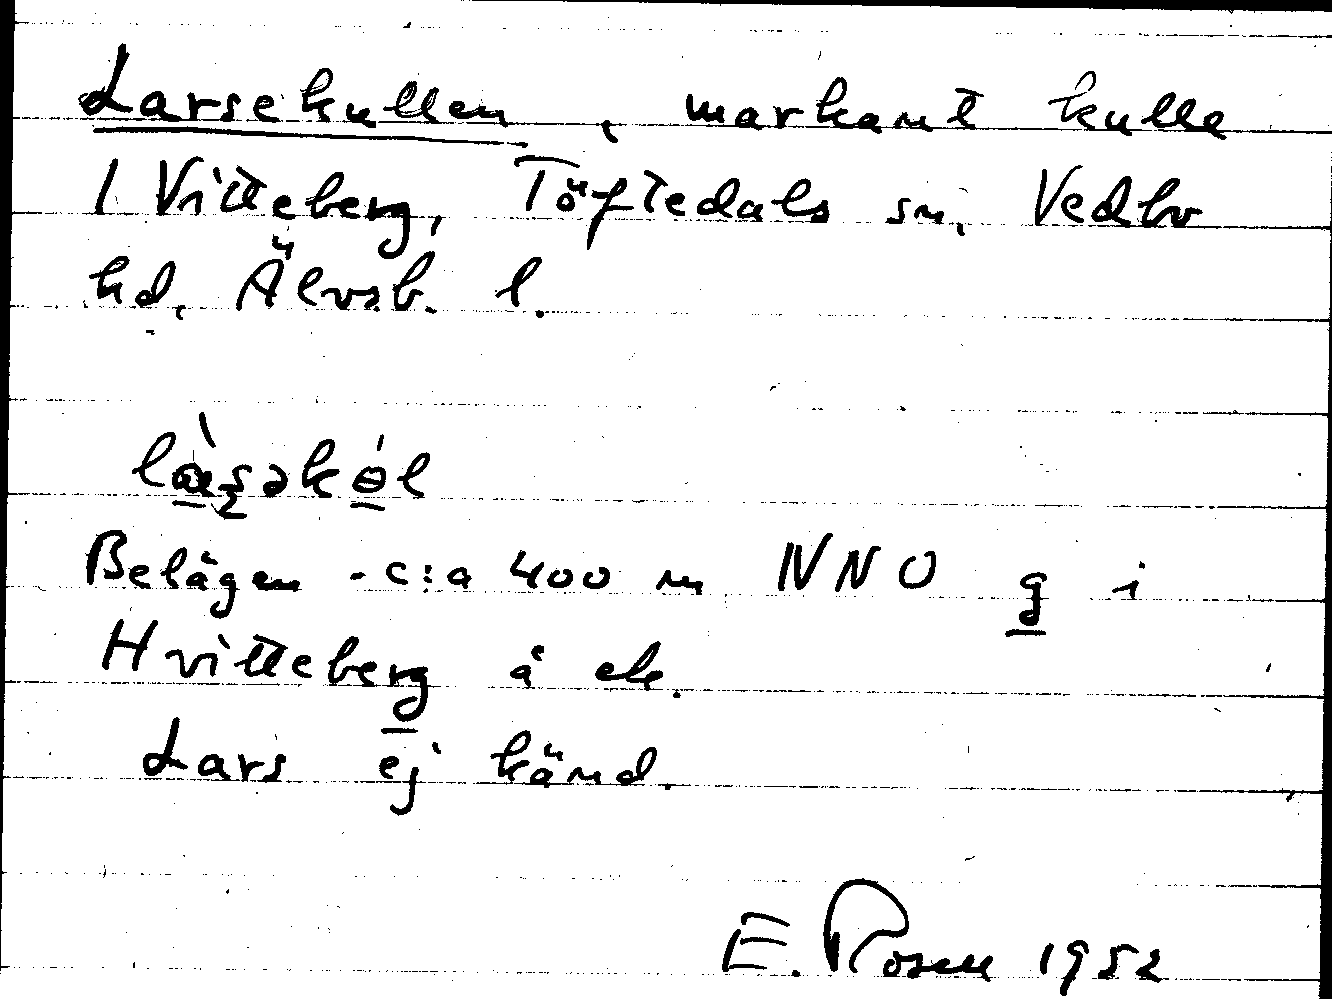 Larsekullen, markant kulle
i Vitteberg, Töftedals sn, Vedbo
hd, Älvsb. l.
Belägen c:a 400 m NNO g i
Hvitteberg å ek.
Lars ej känd.
E. Rosen 1952